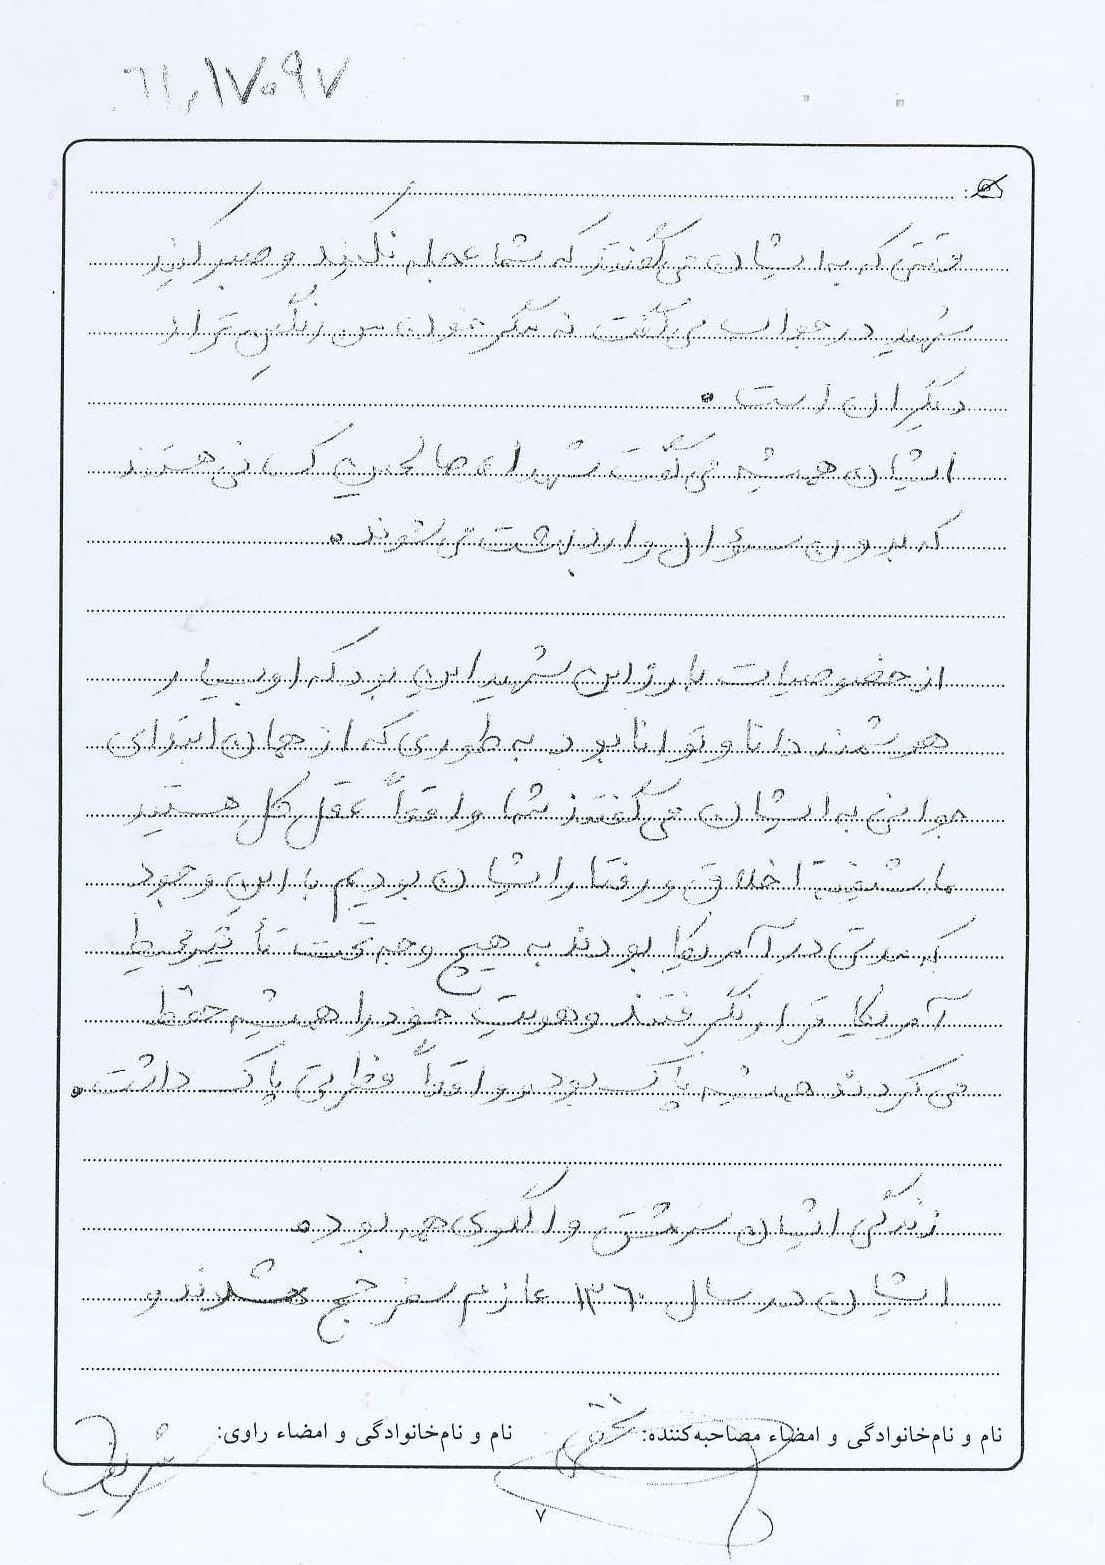 ۶۱۰۱۷۰۹۷
وقتی که به ایشان می گفتند که شما عجله نکنید و صبر کنید
شهید در جواب می گفت نه مگر خون من رنگین تر از
دیگران است .
ایشان همیشه می گفت شهداء صالحین کسانی هستند
که بدون سؤال وارد بهشت می شوند .
از خصوصیات بارز این شهید این بود که او بسیار
هوشمند دانا و توانا بود به طوری که از همان ابتدای
جوانی به ایشان می گفتند شما واقعاً عقل کل هستید
ما شیفته اخلاق و رفتار ایشان بودیم با این وجود
که مدتی در آمریکا بودند به هیچ وجه تحت تأثیر محیط
آمریکا قرار نگرفتند و هویت خود را همیشه حفظ
می کردند همیشه پاک بود و واقعاً فطرتی پاک داشت .
زندگی ایشان سرمشق و الگوی همه بود .
ایشان در سال ۱۳۶۰ عازم سفر حج شدند و
نام و نام‌خانوادگی و امضاء مصاحبه‌کننده:
نام و نام‌خانوادگی و امضاء راوی:
۷